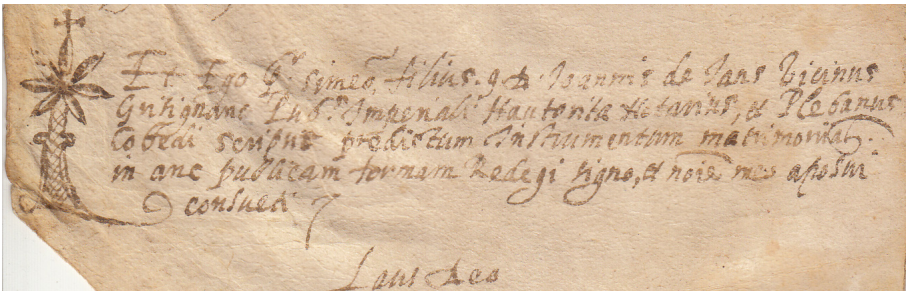 Et Ego P. simeõ filius q. D. Joannis de Jans Vicinus
Grihignanc Pub.ᶜᵒ Imperiali Hautorita Notarius, et Plebanus
Cobedi scripsi predictum Instrumentum matrimonial.
in anc publicam formam Redegi signo, et noĩe meo aposui
consueti
Laus Deo